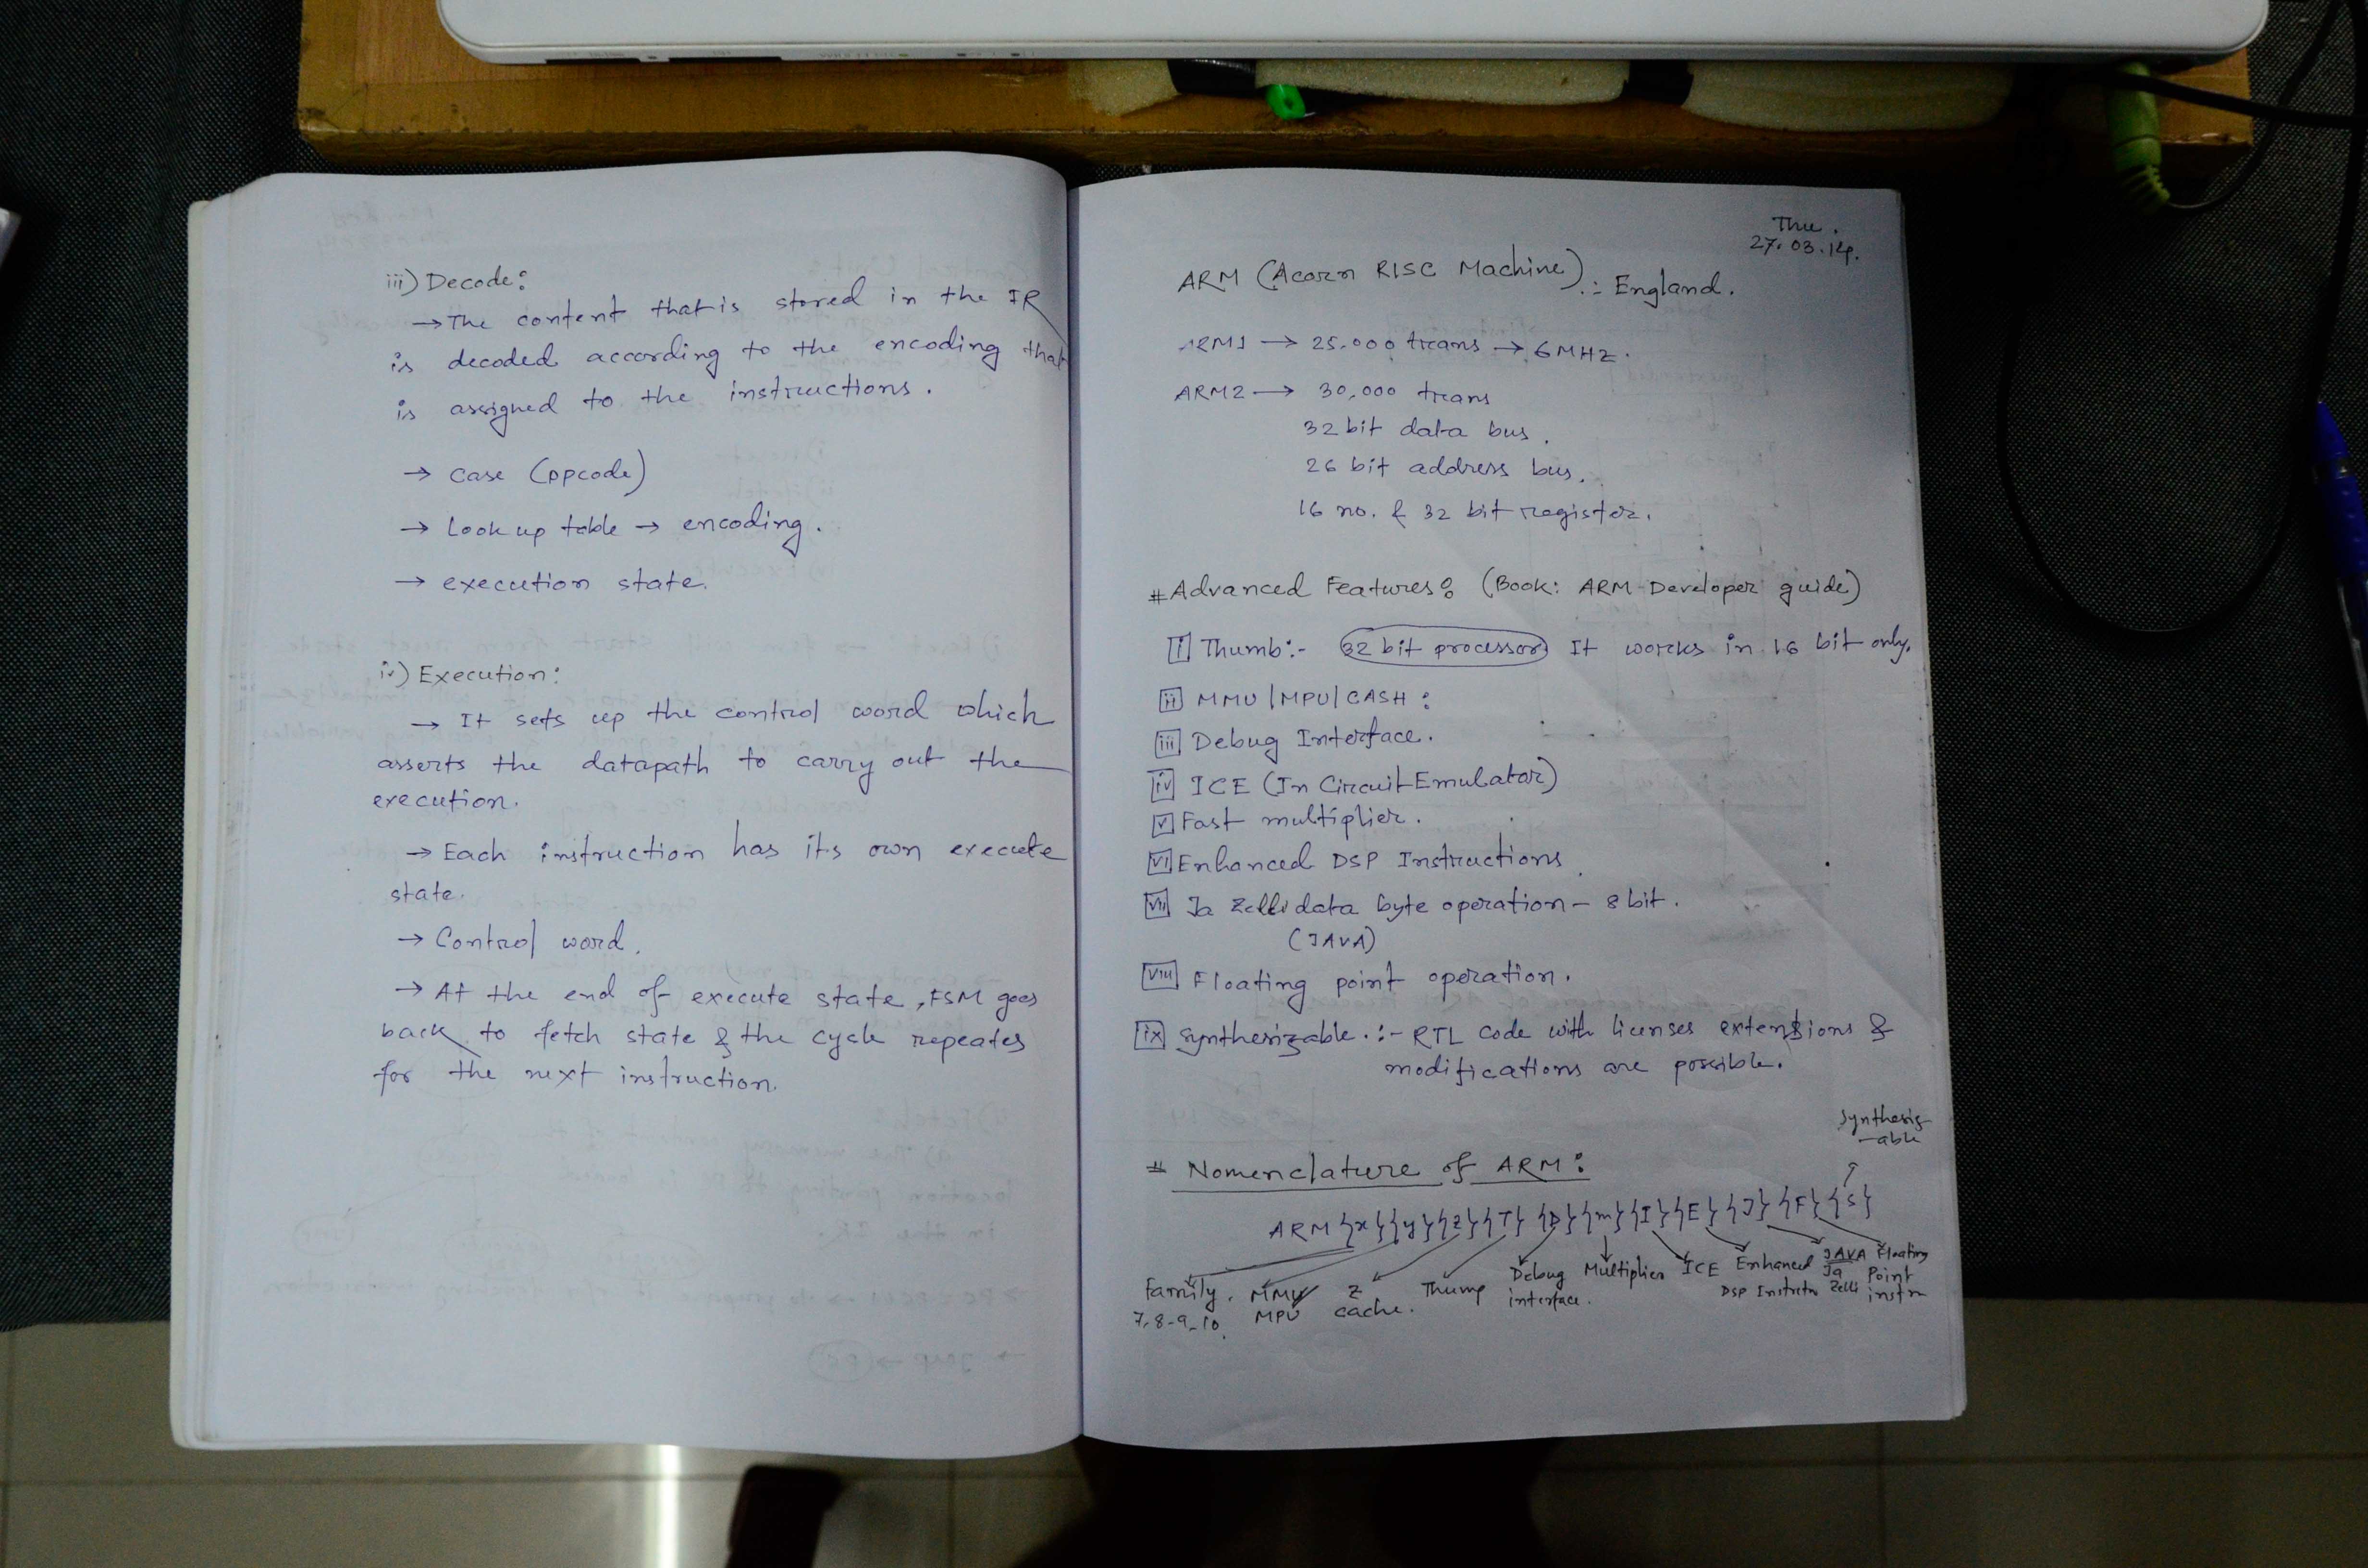 iii) Decode:
→ The content that is stored in the IR
is decoded according to the encoding that
is assigned to the instructions.
→ case (opcode)
→ Look up table → encoding.
→ execution state.
iv) Execution:
→ It sets up the control word which
asserts the datapath to carry out the
execution.
→ Each instruction has its own execute
state.
→ Control word.
→ At the end of execute state, FSM goes
back to fetch state & the cycle repeates
for the next instruction.
Thu.
27.03.14.
ARM (Acorn RISC Machine) :- England.
ARM1 → 25,000 trans → 6MHZ.
ARM2 → 30,000 trans
32 bit data bus.
26 bit address bus.
16 no. & 32 bit register.
# Advanced Features: (Book: ARM-Developer guide)
i Thumb:- 32 bit processor It works in 16 bit only.
ii MMU/MPU/CASH :
iii Debug Interface.
iv ICE (In Circuit Emulator)
v Fast multiplier.
vi Enhanced DSP Instructions
vii Ja Zelli data byte operation - 8 bit.
(JAVA)
viii Floating point operation.
ix Synthesizable. :- RTL Code with licenses extensions &
modifications are possible.
Synthesiz
-able
# Nomenclature of ARM:
ARM {x}{y}{z}{T}{D}{m}{I}{E}{J}{F}{S}
Family. MMU Z Thump Debug Multiplier ICE Enhanced JAVA Floating
7,8-9-10. MPU cache. interface. DSP Instrctn Ja Zelli Point instrn